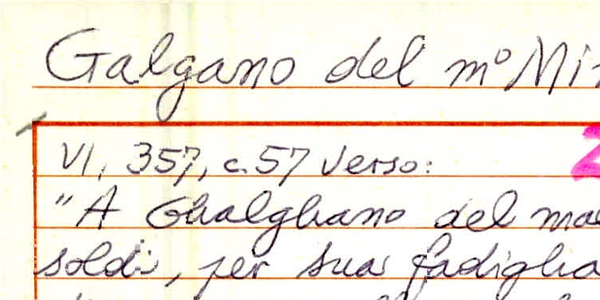 Galgano del m° Mi
VI, 357, c. 57 verso:
"A Ghalghano del
soldi, per sua fadiglia